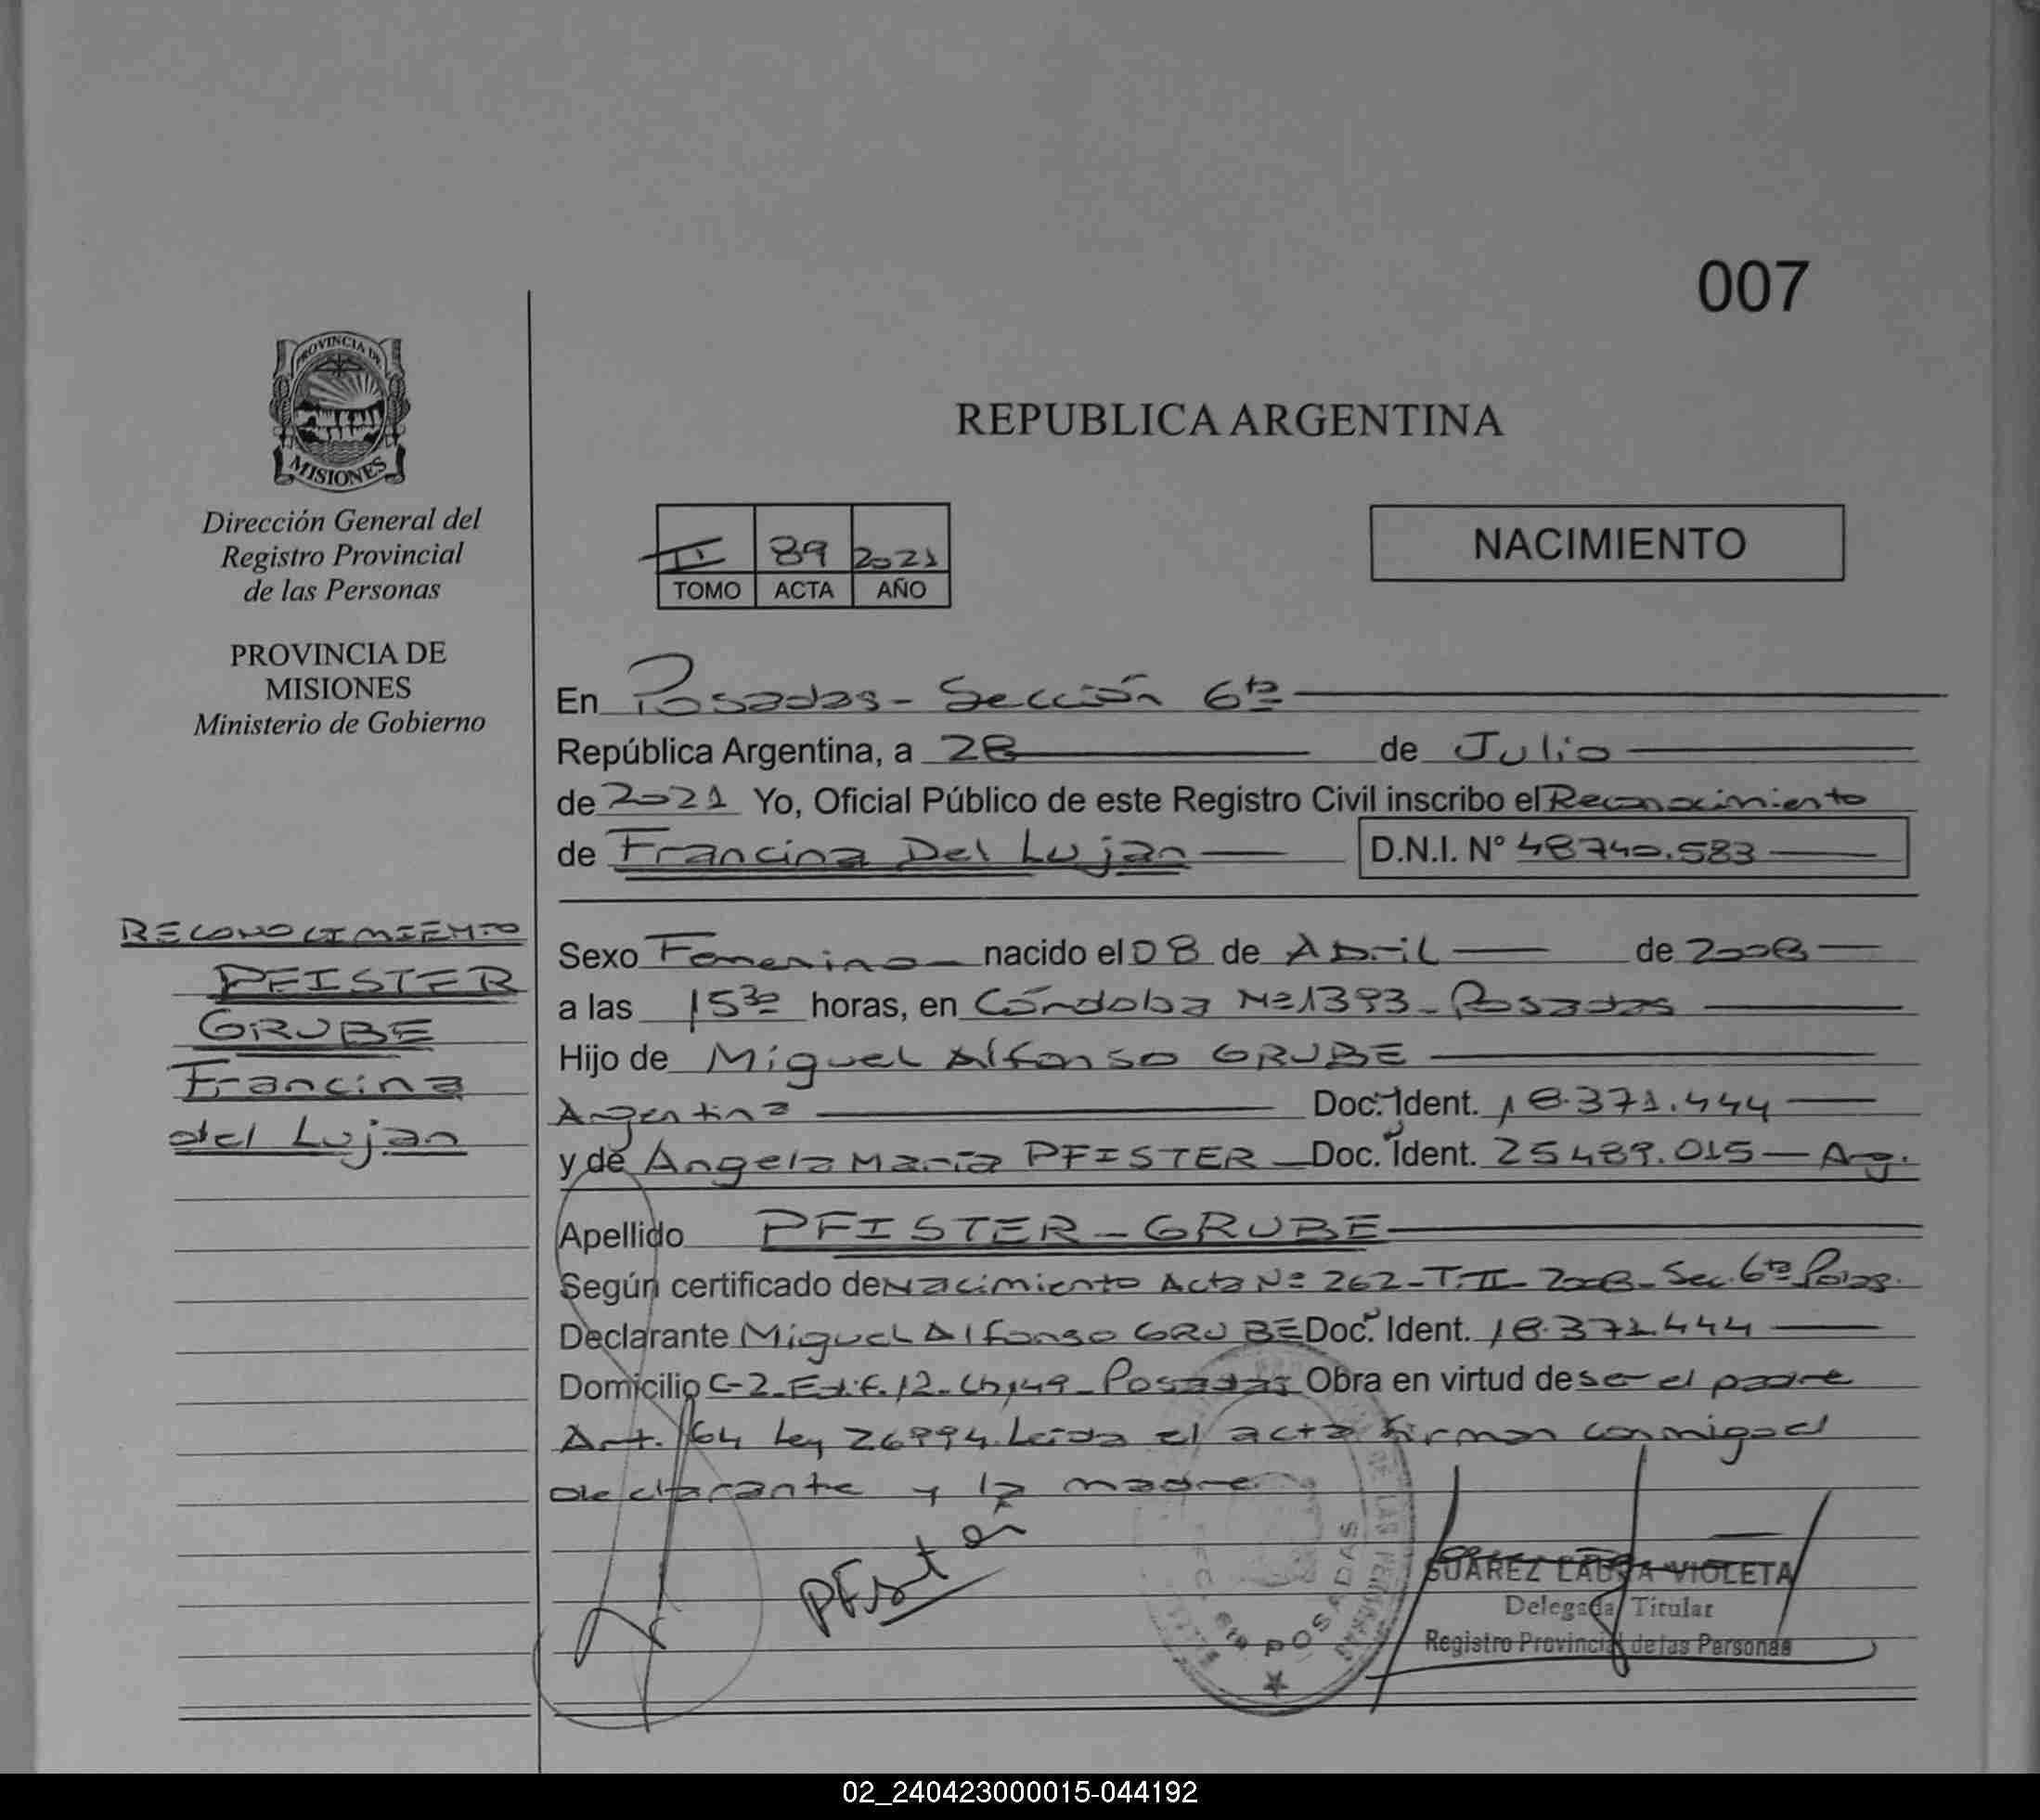 007
PROVINCIA DE
MISIONES
Dirección General del
Registro Provincial
de las Personas
PROVINCIA DE
MISIONES
Ministerio de Gobierno
REPUBLICA ARGENTINA
II 89 2021
TOMO ACTA AÑO
NACIMIENTO
En Posadas - Sección 6ta
República Argentina, a 28 de Julio
de 2021 Yo, Oficial Público de este Registro Civil inscribo el Reconocimiento
de Francina Del Lujan D.N.I. N° 48740.583
RECONOCIMIENTO
PFISTER
GRUBE
Francina
del Lujan
Sexo Femenino nacido el 08 de Abril de 2008
a las 15 30 horas, en Córdoba Nº 1393 - Posadas
Hijo de Miguel Alfonso GRUBE
Argentina Doc. Ident. 18.371.444
y de Angela Maria PFISTER Doc. Ident. 25489.015 - Arg.
Apellido PFISTER - GRUBE
Según certificado de Nacimiento Acta Nº 262 - T. II - 2008 - Sec. 6ta Pdas.
Declarante Miguel Alfonso GRUBE Doc. Ident. 18.371.444
Domicilio C-2 - Edif. 12 - Ch. 149 - Posadas Obra en virtud de ser el padre
Art. 64 Ley 26994. Leida el acta firman conmigo el
declarante y la madre
Pfister
POSADAS
SUAREZ LAURA VIOLETA
Delegada Titular
Registro Provincial de las Personas
02_240423000015-044192